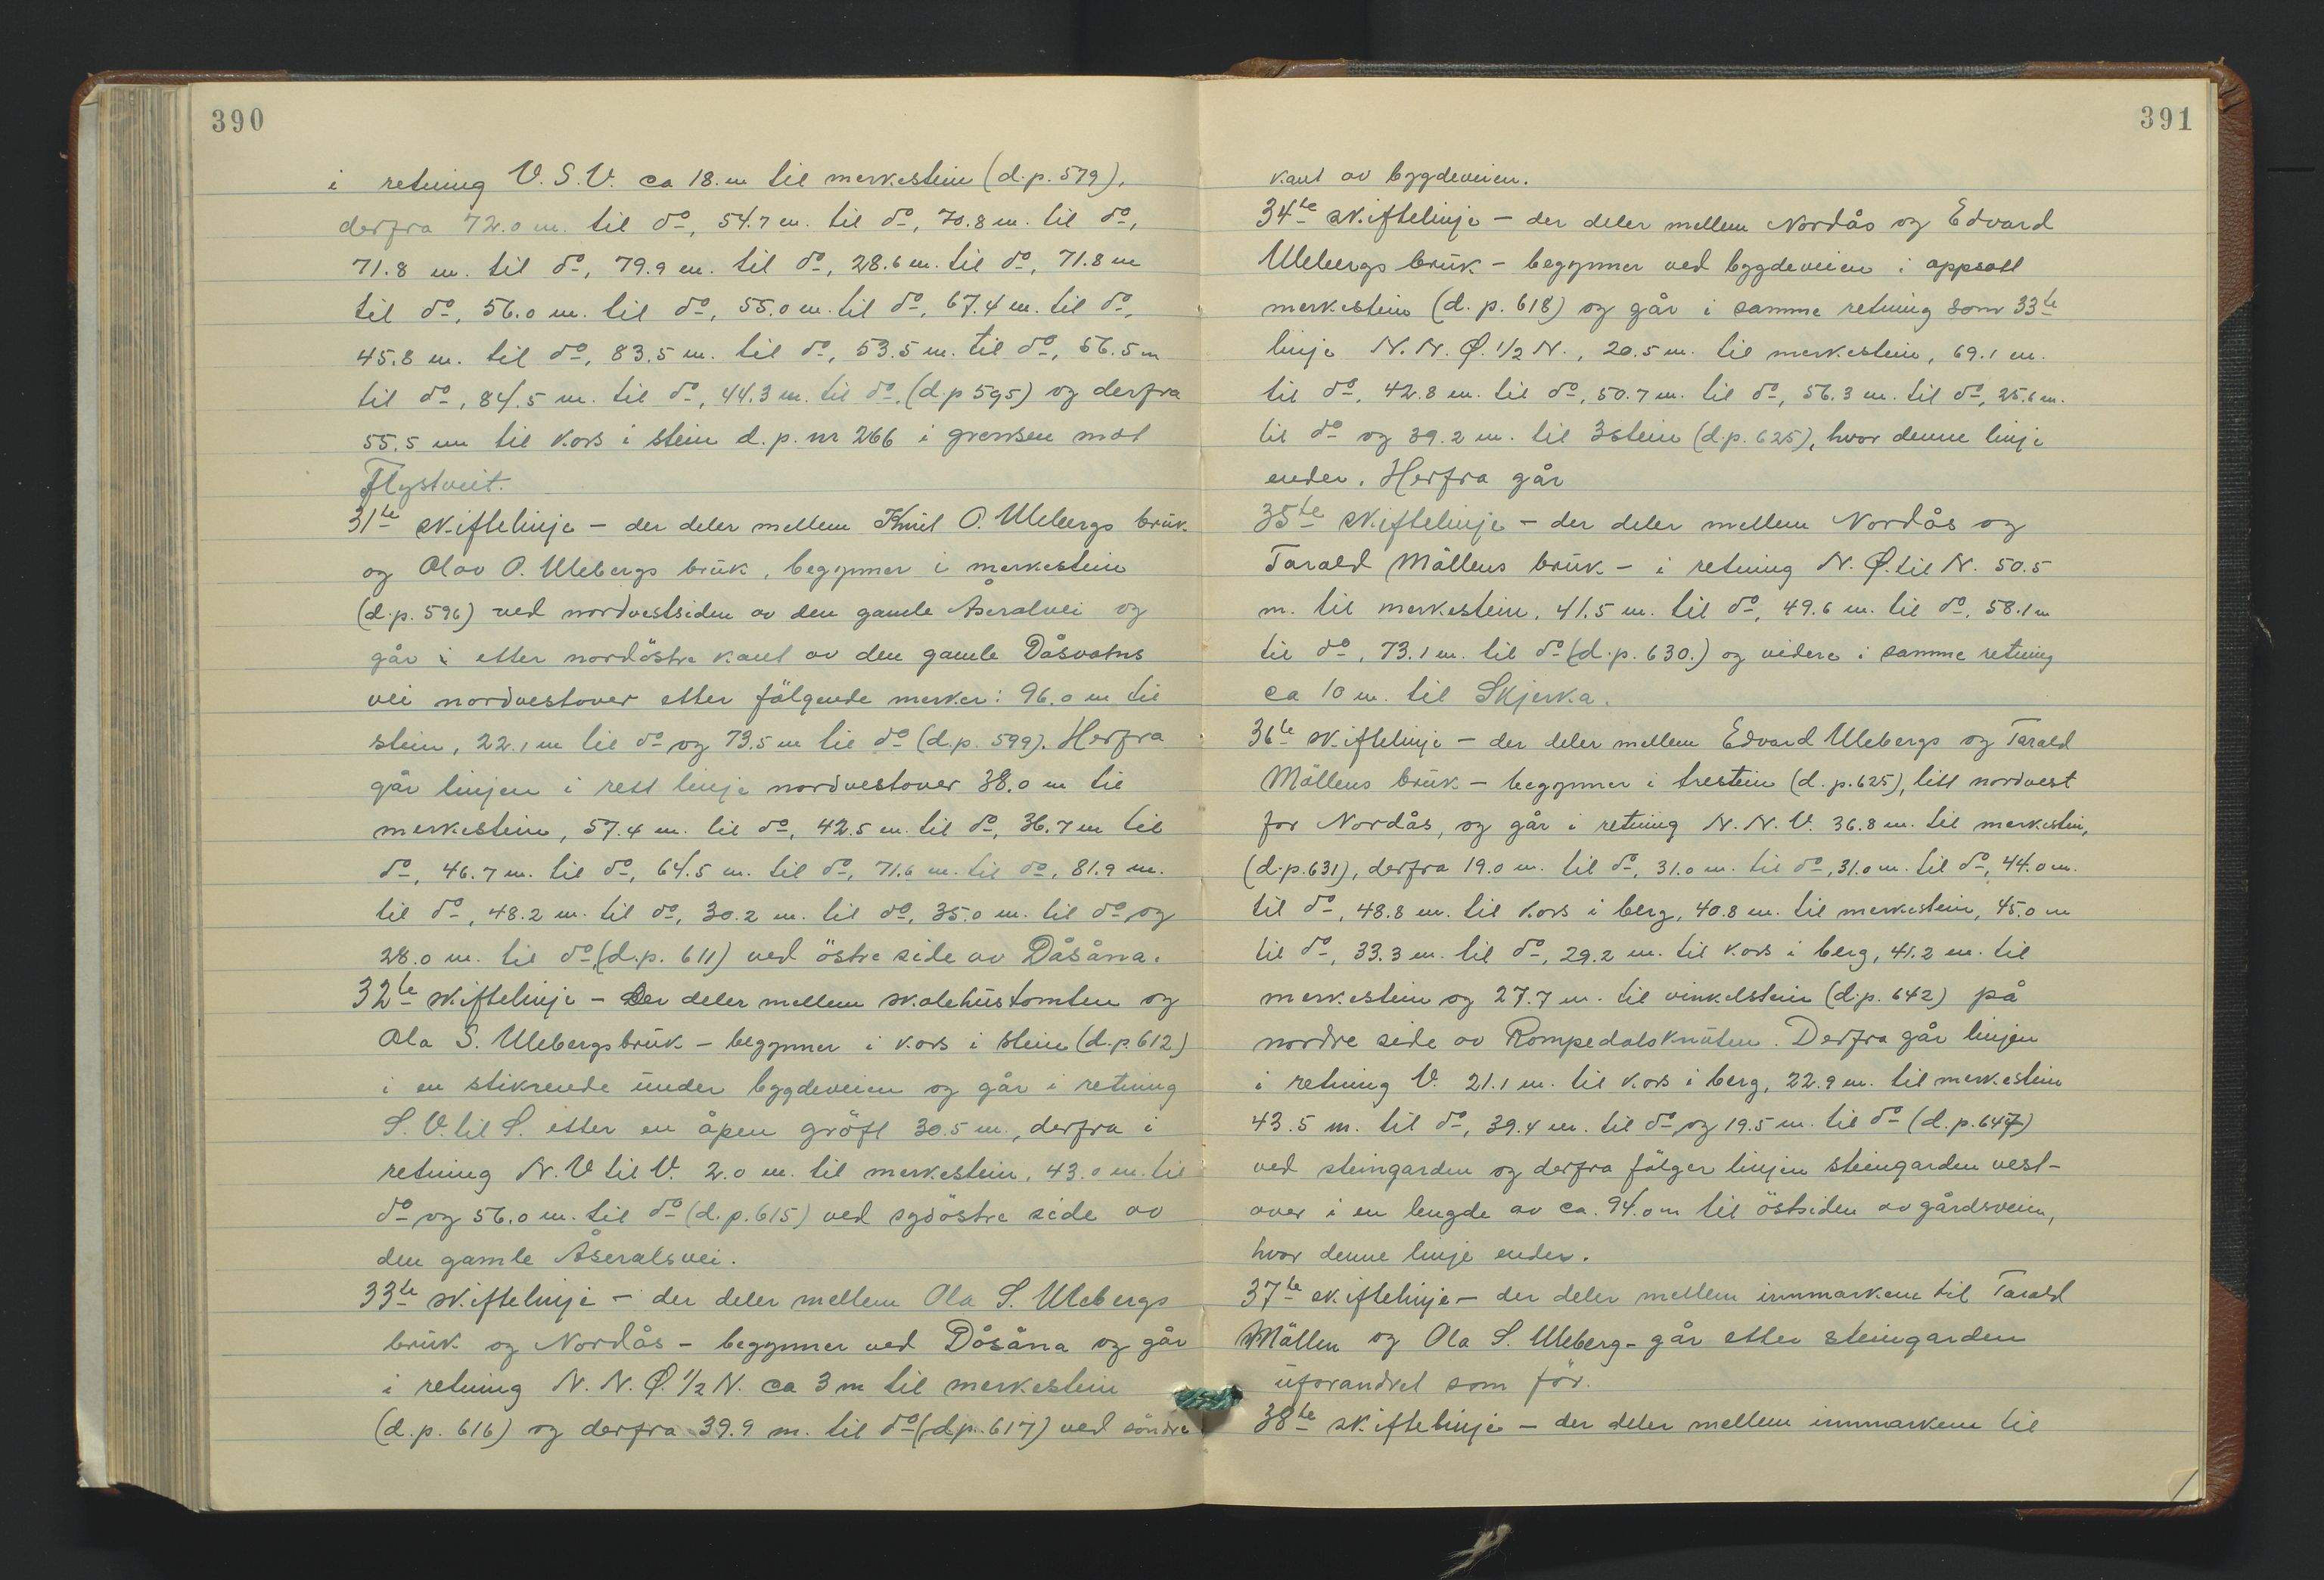 390
i retning V. S. V. ca 18. m til merkestein (d. p. 579),
derfra 72.0 m. til do, 54.7 m. til do, 70.8 m. til do,
71.8 m. til do, 79.9 m. til do, 28.6 m. til do, 71.8 m
til do, 56.0 m. til do, 55.0 m. til do, 67.4 m. til do,
45.8 m. til do, 83.5 m. til do, 53.5 m. til do, 56.5 m
til do, 84.5 m. til do, 44.3 m. til do, (d. p 595) og derfra
55.5 m til kors i stein d. p. nr 266 i grensen mot
Flystveit.
31te skiftelinje - der deler mellem Knut O. Ulebergs bruk
og Olav O. Ulebergs bruk, begynner i merkestein
(d. p. 596) ved nordvestsiden av den gamle Åseralvei og
går i etter nordöstre kant av den gamle Dåsvatns
vei nordvestover etter fölgende merker: 96.0 m til
stein, 22.1 m til do og 73.5 m til do (d. p. 599). Herfra
går linjen i rett linje nordvestover 38.0 m til
merkestein, 57.4 m. til do, 42.5 m. til do, 36.7 m til
do, 46.7 m. til do, 64.5 m. til do, 71.6 m. til do, 81.9 m.
til do, 48.2 m. til do, 30.2 m. til do, 35.0 m. til do og
28.0 m. til do (d. p. 611) ved östre side av Dåsåna.
32te skiftelinje - der deler mellem skolehustomten og
Ola S. Ulebergs bruk - begynner i kors i stein (d. p. 612)
i en stikrende under bygdeveien og går i retning
S. V. til S. etter en åpen gröft 30.5 m., derfra i
retning N. V til V. 2.0 m. til merkestein, 43.0 m. til
do og 56.0 m. til do (d. p. 615) ved sydöstre side av
den gamle Åseralsvei.
33te skiftelinje - der deler mellem Ola S. Ulebergs
bruk og Nordås - begynner ved Dåsåna og går
i retning N. N. Ø. 1/2 N. ca 3 m til merkestein
(d. p. 616) og derfra 39.9 m. til do (d. p. 617) ved söndre
391
kant av bygdeveien.
34te skiftelinje - der deler mellem Nordås og Edvard
Ulebergs bruk - begynner ved bygdeveien i oppsatt
merkestein (d. p. 618) og går i samme retning som 33te
linje N. N. Ø. 1/2 N., 20.5 m. til merkestein, 69.1 m.
til do, 42.8 m. til do, 50.7 m. til do, 56.3 m. til do, 25.6 m.
til do og 39.2 m. til 3stein (d. p. 625), hvor denne linje
ender. Herfra går
35te skiftelinje - der deler mellem Nordås og
Tarald Möllens bruk - i retning N. Ø. til N. 50.5
m. til merkestein, 41.5 m. til do, 49.6 m. til do, 58.1 m
til do, 73.1 m. til do (d. p. 630.) og videre i samme retning
ca 10 m. til Skjerka.
36te skiftelinje - der deler mellem Edvard Ulebergs og Tarald
Möllens bruk - begynner i trestein (d. p. 625), litt nordvest
for Nordås, og går i retning N. N. V. 36.8 m. til merkestein,
(d. p. 631), derfra 19.0 m. til do, 31.0 m. til do, 31.0 m. til do, 44.0 m.
til do, 48.8 m. til kors i berg, 40.8 m. til merkestein, 45.0 m
til do, 33.3 m. til do, 29.2 m. til kors i berg, 41.2 m. til
merkestein og 27.7 m. til vinkelstein (d. p. 642) på
nordre side av Rompedalsknuten. Derfra går linjen
i retning V. 21.1 m. til kors i berg, 22.9 m. til merkestein
43.5 m. til do, 39.4 m. til do og 19.5 m. til do (d. p. 647)
ved steingarden og derfra fölger linjen steingarden vest-
over i en lengde av ca. 94.0 m til östsiden av gårdsveien,
hvor denne linje ender.
37te skiftelinje - der deler mellem innmarkene til Tarald
Möllen og Ola S. Uleberg - går etter steingarden
uforandret som för.
38te skiftelinje - der deler mellem innmarkene til